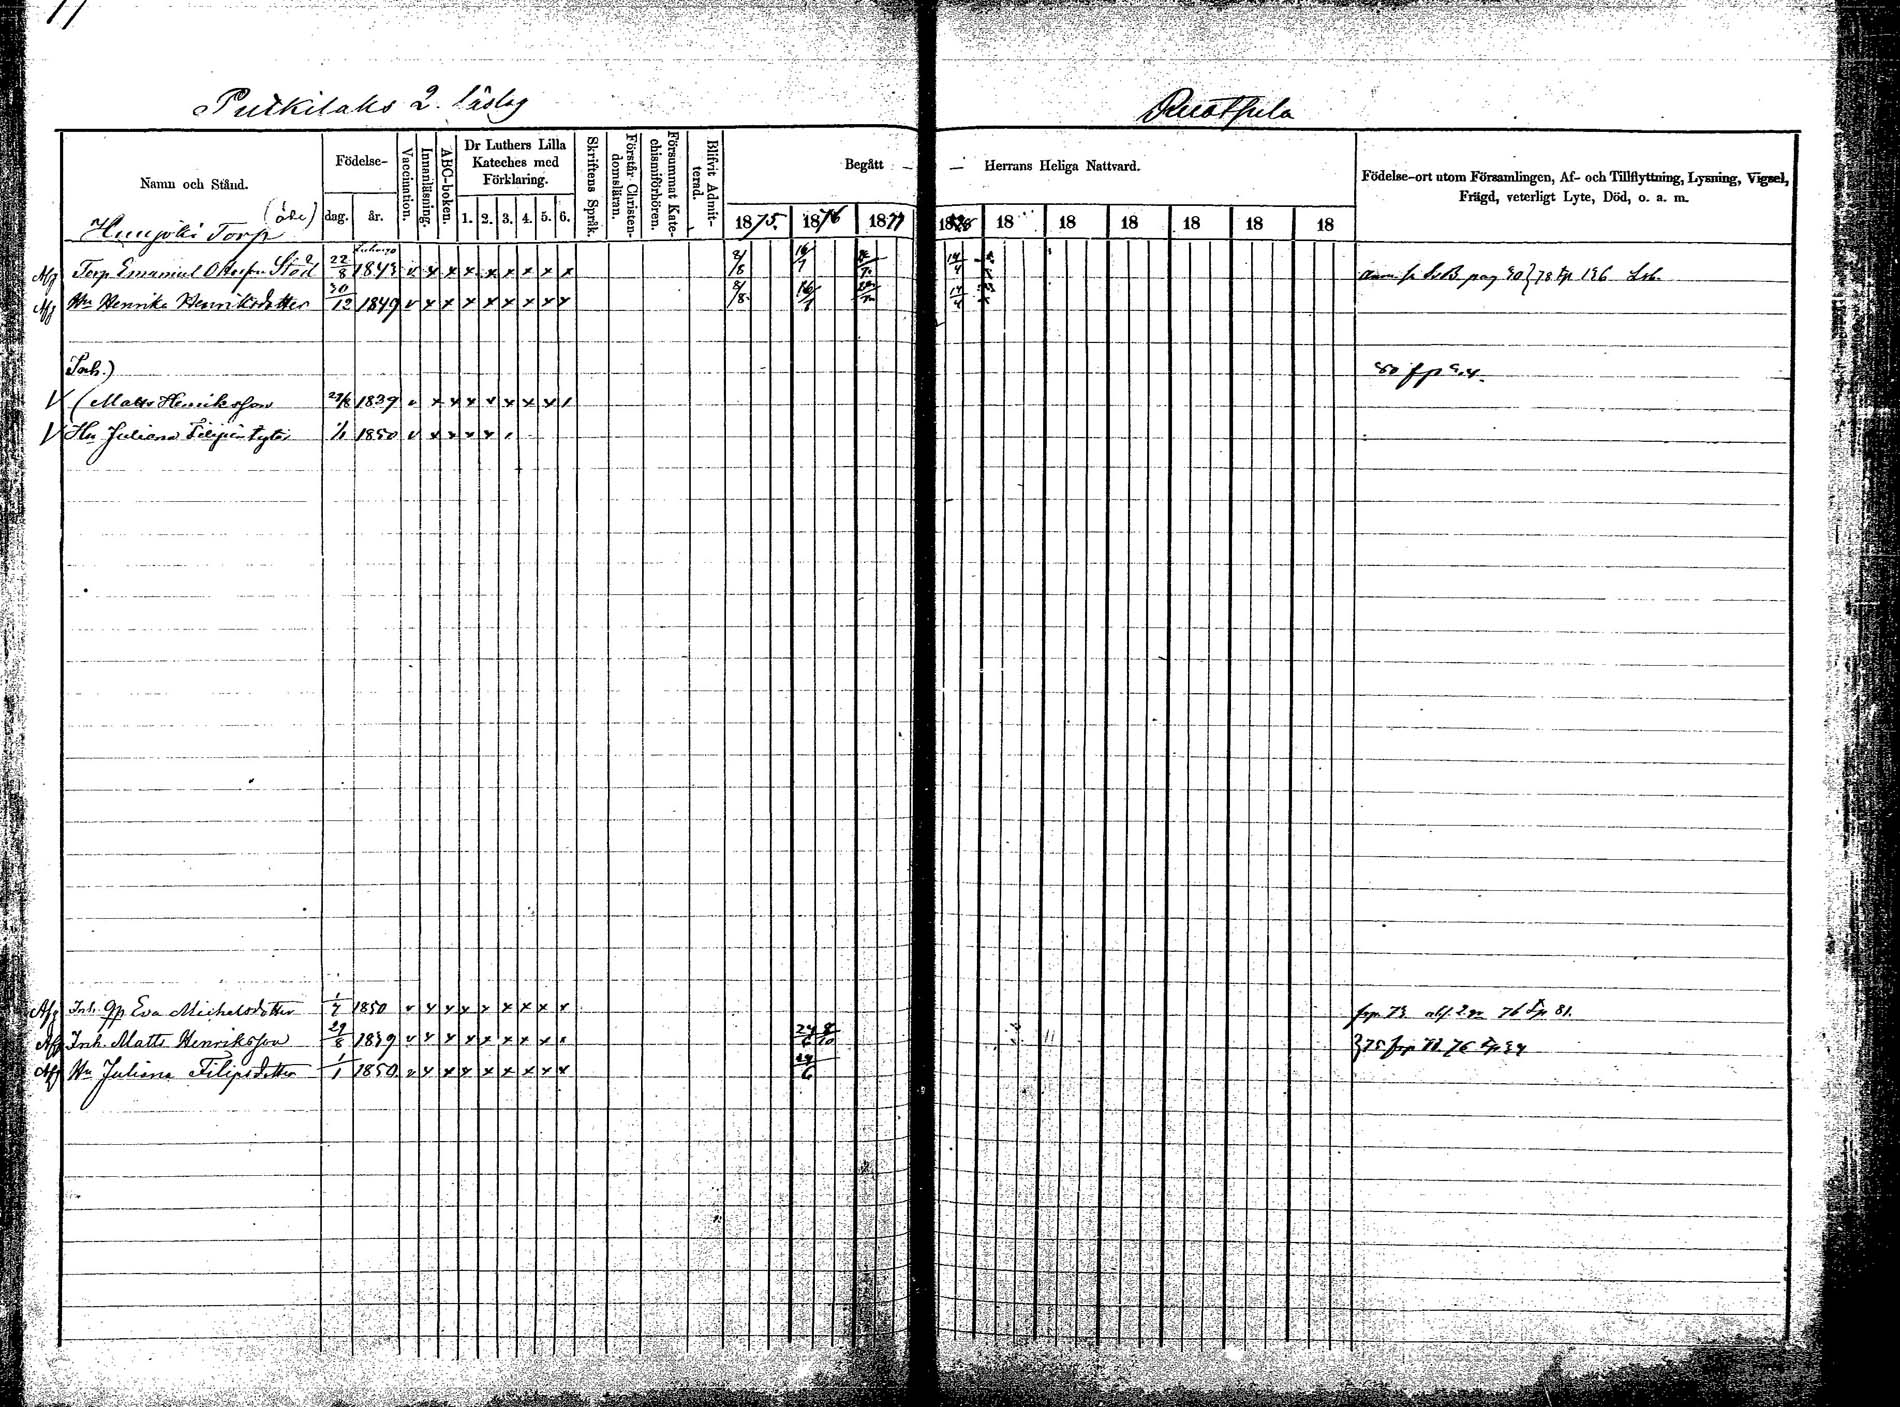 77
Putkilaks 2. läslag
Ruothula
Namn och Stånd.
Födelse-
dag.
år.
Vaccination.
Innanläsning.
ABC-boken.
Dr Luthers Lilla Kateches med Förklaring.
1. 2. 3. 4. 5. 6.
Skriftens Språk.
Förstår Christendomsläran.
Försummat Katechismiförhören.
Blifvit Admitterad.
Begått — — Herrans Heliga Nattvard.
1875. 1876 1877 18 18 18 18 18 18 18
Födelse-ort utom Församlingen, Af- och Tillflyttning, Lysning, Vigsel, Frägd, veterligt Lyte, Död, o. a. m.
(öde)
Hunjolki Torp
Afg Torp. Emanuel 22/8 1843 v x x x x x x x x 2/8 16/7 14/4
Afg Hu Henrika Henriksdotter 30/12 1849 v x x x x x x x x 2/8 16/7 14/4
Inh.)
V (Matts Henriksson 29/8 1839 v x x x x x x x /
V Hu Juliana Filipintytär 1/1 1850 v x x x x
Afg Inh. Eva Michelsdotter 1/7 1850 v x x x x x x x x 76 81.
Afg Inh. Matts Henriksson 29/8 1839 v x x x x x x x x 24/6 8/10
Afg Hu Juliana Filipsdotter 1/1 1850 v x x x x x x x x 24/6